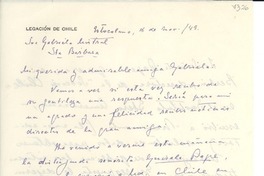 LEGACIÓN DE CHILE
Estocolmo, 16 de Nov/48
Sra Gabriela Mistral
Sta Barbara
Mi querida y admirable amiga Gabriela:
Vamos a ver si esta vez
su gentileza una respuesta. Sería para mi
un agrado y una felicidad recibir noticias
directas de la gran amiga.
Ha venido a vernos esta mañana
la distinguida señorita
en Chile en